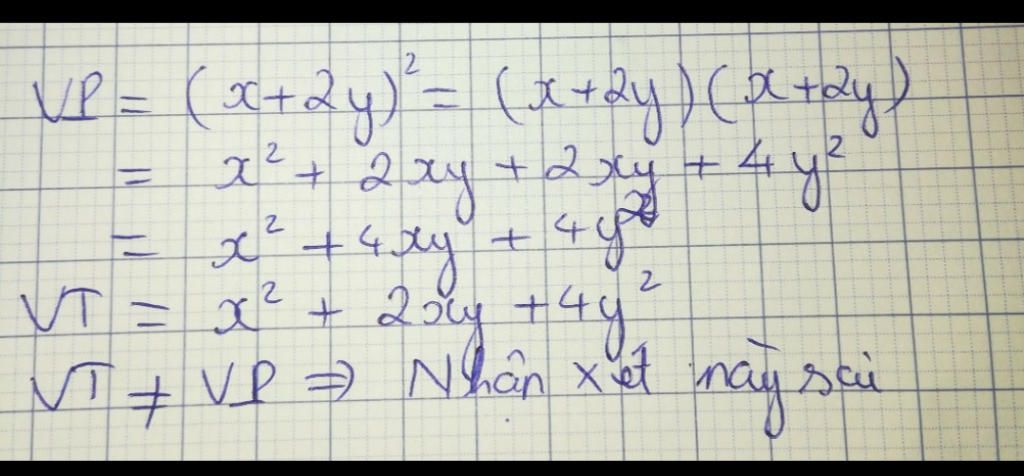 VP = (x+2y)² = (x+2y)(x+2y)
= x² + 2xy + 2xy + 4y²
= x² + 4xy + 4y²
VT = x² + 2xy + 4y²
VT ≠ VP ⇒ Nhận xét này sai